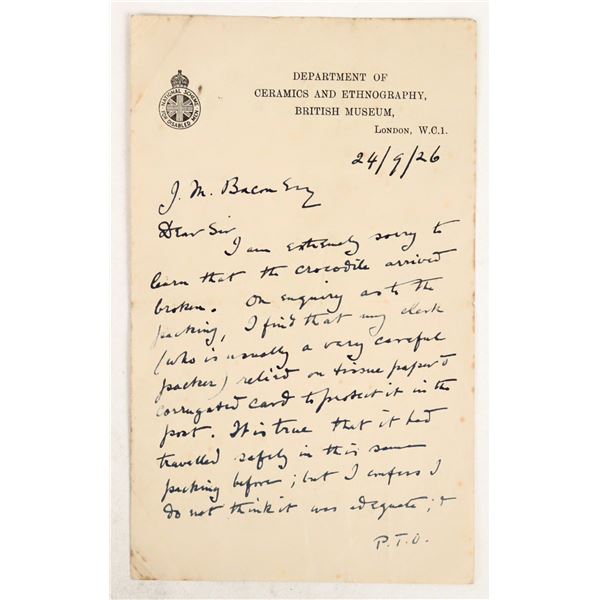 NATIONAL SCHEME
FOR DISABLED MEN
DEPARTMENT OF
CERAMICS AND ETHNOGRAPHY,
BRITISH MUSEUM,
LONDON, W.C.1.
24/9/26
J. M. Bacon Esq
Dear Sir
I am extremely sorry to
learn that the crocodile arrived
broken. On enquiry as to the
packing, I find that my clerk
(who is usually a very careful
packer) relied on tissue paper &
corrugated card to protect it in the
post. It is true that it had
travelled safely in this same
packing before; but I confess I
do not think it was adequate; &
P.T.O.